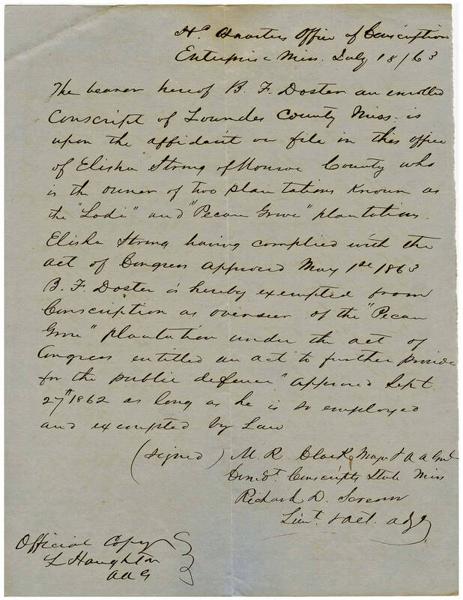 Hd Quarters Office of Conscription
Enterprise Miss. July 18/63
The bearer hereof B. F. Doster an enrolled
Conscript of Lowndes County Miss. is
upon the affidavit on file in this office
of Elisha Strong of Monroe County who
is the owner of two plantations known as
the "Lodi" and "Pecan Grove" plantations.
Elisha Strong having complied with the
act of Congress approved May 1st 1863
B. F. Doster is hereby exempted from
Conscription as overseer of the "Pecan
Grove" plantation under the act of
Congress entitled an act to further provide
for the public defence" approved Sept
27th 1862 as long as he is so employed
and exempted by Law
(signed) M R Clark Maj & A A Genl
Comdt Conscripts State Miss
Richard D.
Lieut & act. adjt
Official Copy
L Haughton
AAG